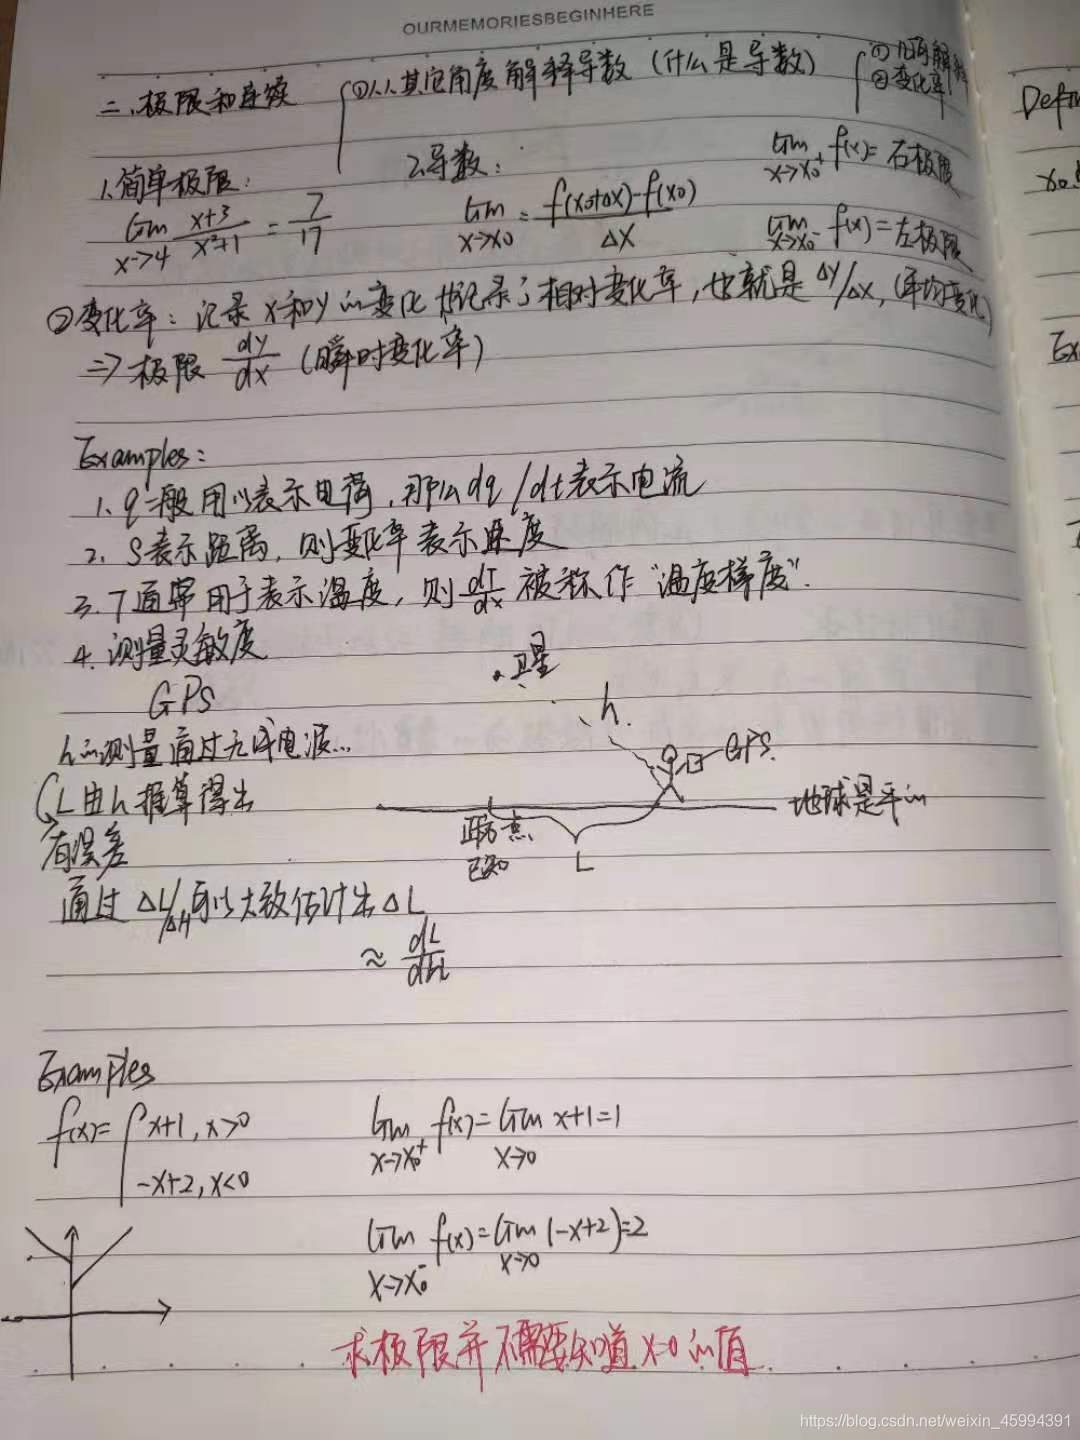 OURMEMORIESBEGINHERE
二、极限和连续
①从其它角度解释导数（什么是导数）
①几何解释
②变化率
1.简单极限：
lim x→4 x+3/x²+1 = 7/17
2.导数：
lim x→x0 = f(x0+Δx)-f(x0)/Δx
lim x→x0⁺ f(x)=右极限
lim x→x0⁻ f(x)=左极限
②变化率：记录x和y的变化 也记录了相对变化率，也就是Δy/Δx，(平均变化)
=> 极限 dy/dx (瞬时变化率)
Examples：
1. q一般用以表示电荷，那么dq/dt表示电流
2. S表示距离，则变化率表示速度
3. T通常用于表示温度，则dT/dx被称作“温度梯度”.
4. 测量灵敏度
GPS
卫星
h
GPS
h的测量通过无线电波...
L由h推算得出
有误差
地球是平的
点
已知
L
通过ΔL/ΔH可以大致估计出ΔL
≈ dL/dH
Examples
f(x)={x+1, x>0
-x+2, x<0
lim x→x0⁺ f(x)=lim x→0 x+1=1
lim x→x0⁻ f(x)=lim x→0 (-x+2)=2
求极限并不需要知道x=0的值
Defin
x0
Ex
https://blog.csdn.net/weixin_45994391